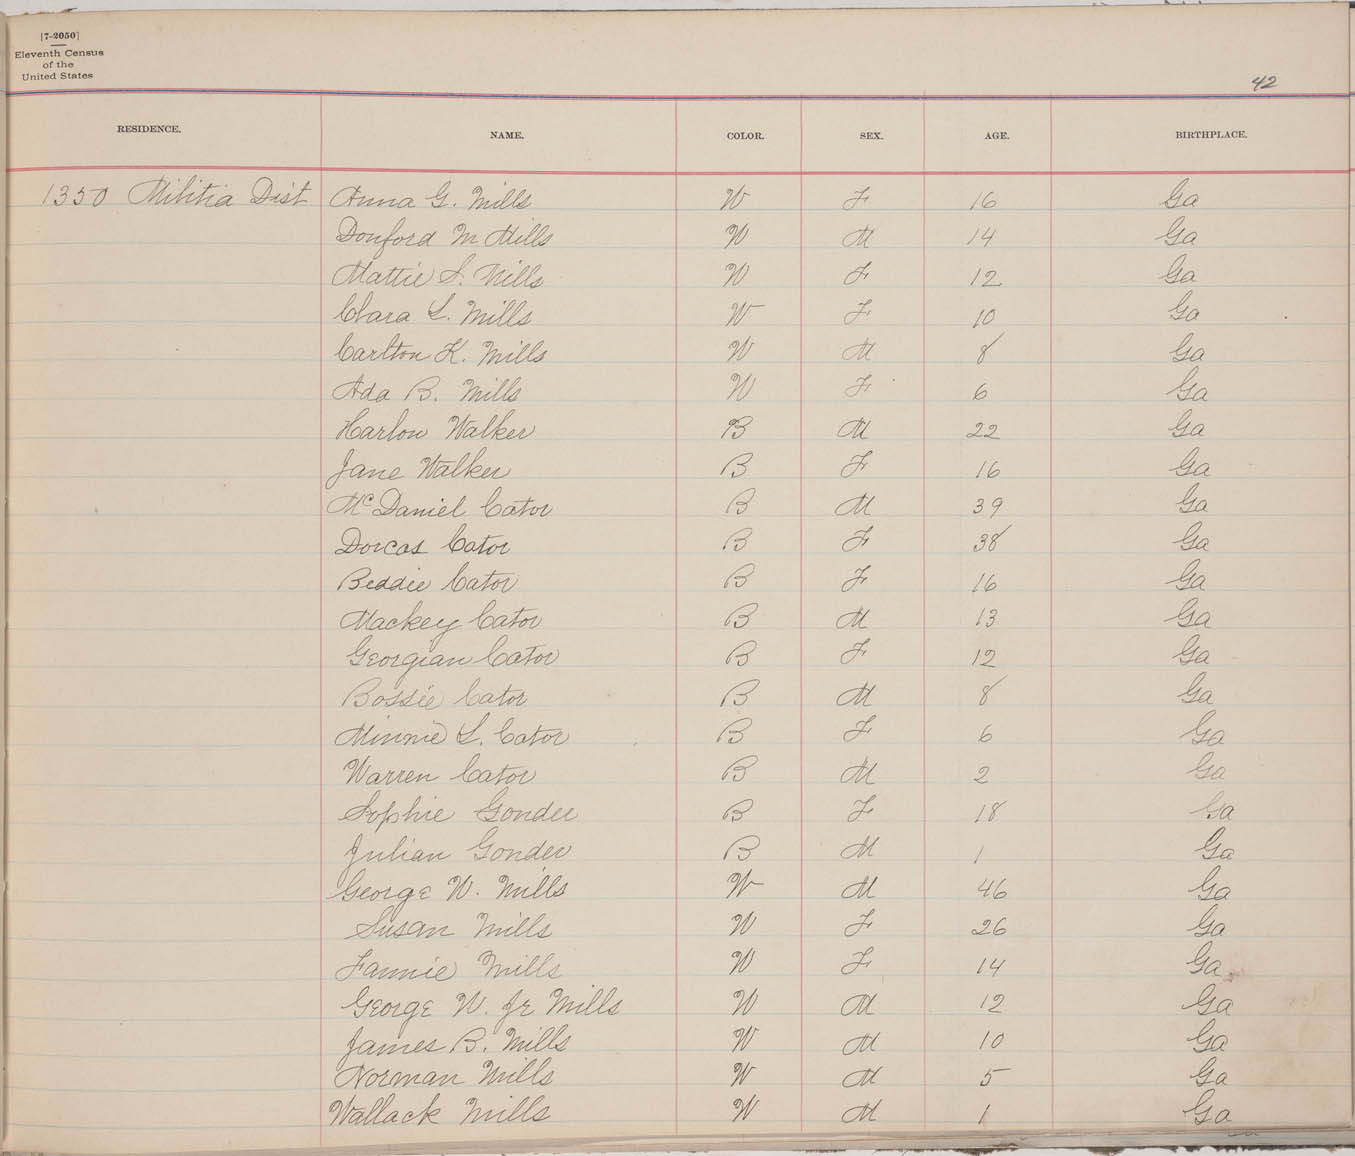 [7-2050]
Eleventh Census
of the
United States
42
RESIDENCE. NAME. COLOR. SEX. AGE. BIRTHPLACE.
1350 Militia Dist Anna G. Mills W F 16 Ga
Donford M Mills W M 14 Ga
Mattie S. Mills W F 12 Ga
Clara L. Mills W F 10 Ga
Carlton K. Mills W M 8 Ga
Ada B. Mills W F 6 Ga
Harlon Walker B M 22 Ga
Jane Walker B F 16 Ga
McDaniel Cator B M 39 Ga
Dorcas Cator B F 38 Ga
Beddie Cator B F 16 Ga
Mackey Cator B M 13 Ga
Georgian Cator B F 12 Ga
Bossie Cator B M 8 Ga
Minnie L. Cator B F 6 Ga
Warren Cator B M 2 Ga
Sophie Gonder B F 18 Ga
Julian Gonder B M 1 Ga
George W. Mills W M 46 Ga
Susan Mills W F 26 Ga
Fannie Mills W F 14 Ga
George W. Jr Mills W M 12 Ga
James B. Mills W M 10 Ga
Norman Mills W M 5 Ga
Wallack Mills W M 1 Ga